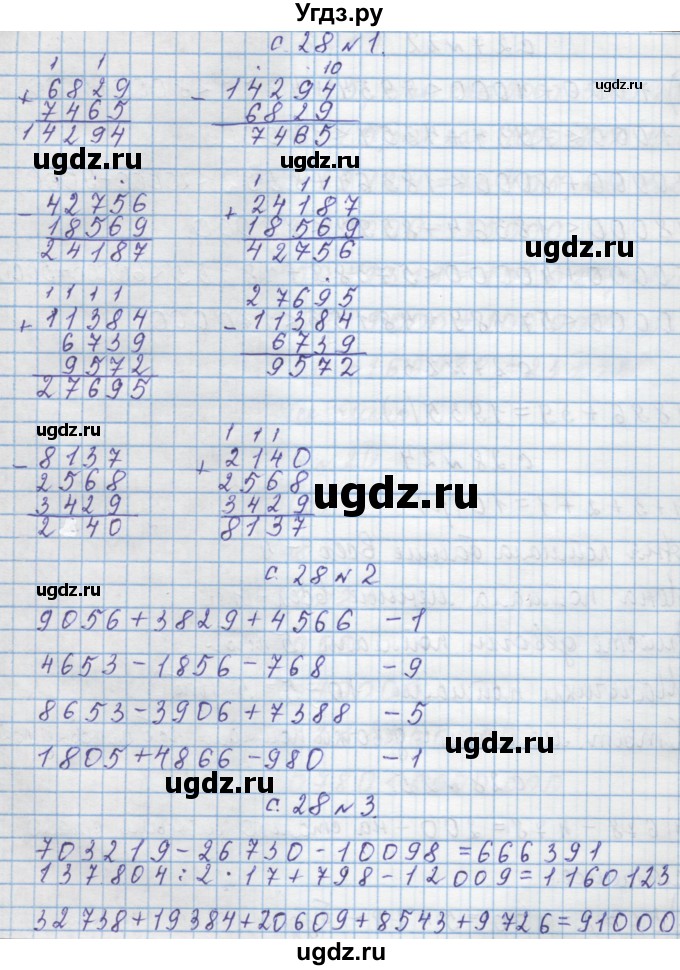 Угдз.ру
с. 28 № 1.
1 1
+ 6829
7465
14294
10
- 14294
6829
7465
ugdz.ru
ugdz.ru
- 42756
18569
24187
1 11
+ 24187
18569
42756
ugdz.ru
1111
+ 11384
6739
9572
27695
27695
- 11384
6739
9572
ugdz.ru
- 8137
2568
3429
2 40
111
+ 2140
2568
3429
8137
ugdz.ru
с. 28 № 2
ugdz.ru
9056+3829+4566 - 1
4653-1856-768 - 9
8653-3906+7388 - 5
1805+4866-980 - 1
ugdz.ru
ugdz.ru
с. 28 № 3.
703219-26730-10098=666391
137804:2·17+798-12009=1160123
32738+19384+20609+8543+9726=91000
ugdz.ru